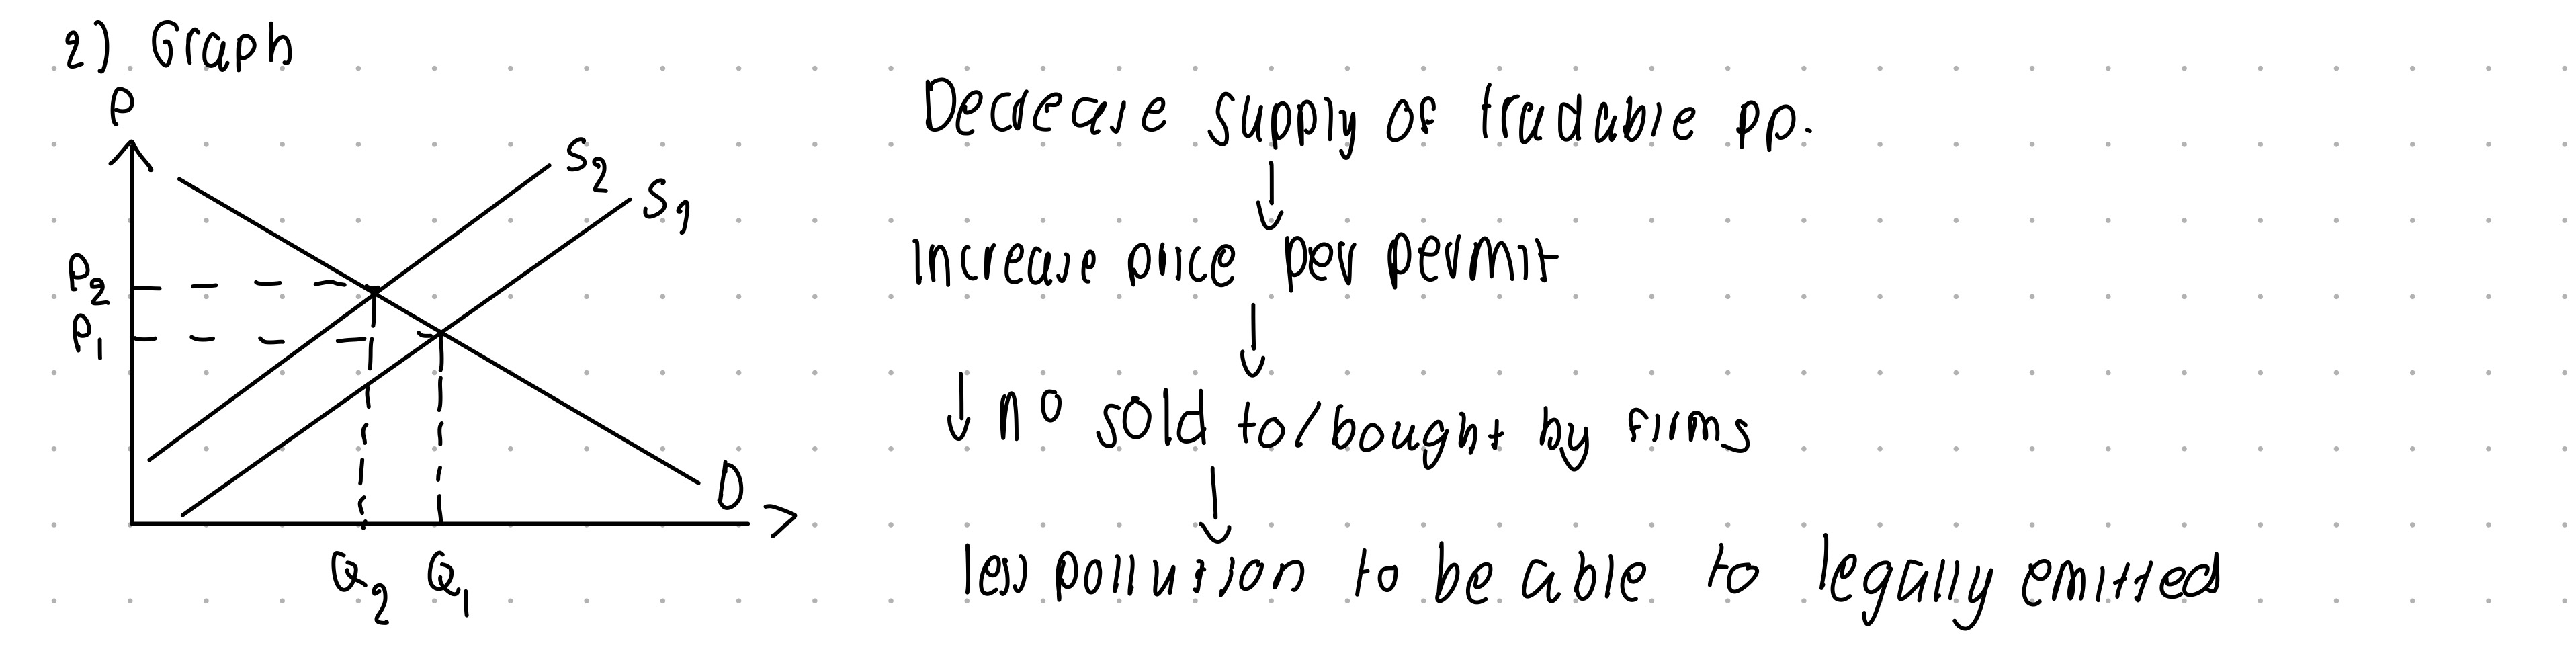 2) Graph
P
S2
S1
P2
P1
D
Q2 Q1
Decrease supply of tradable pp.
↓
increase price per permit
↓
↓ nº sold to/bought by firms
↓
less pollution to be able to legally emitted